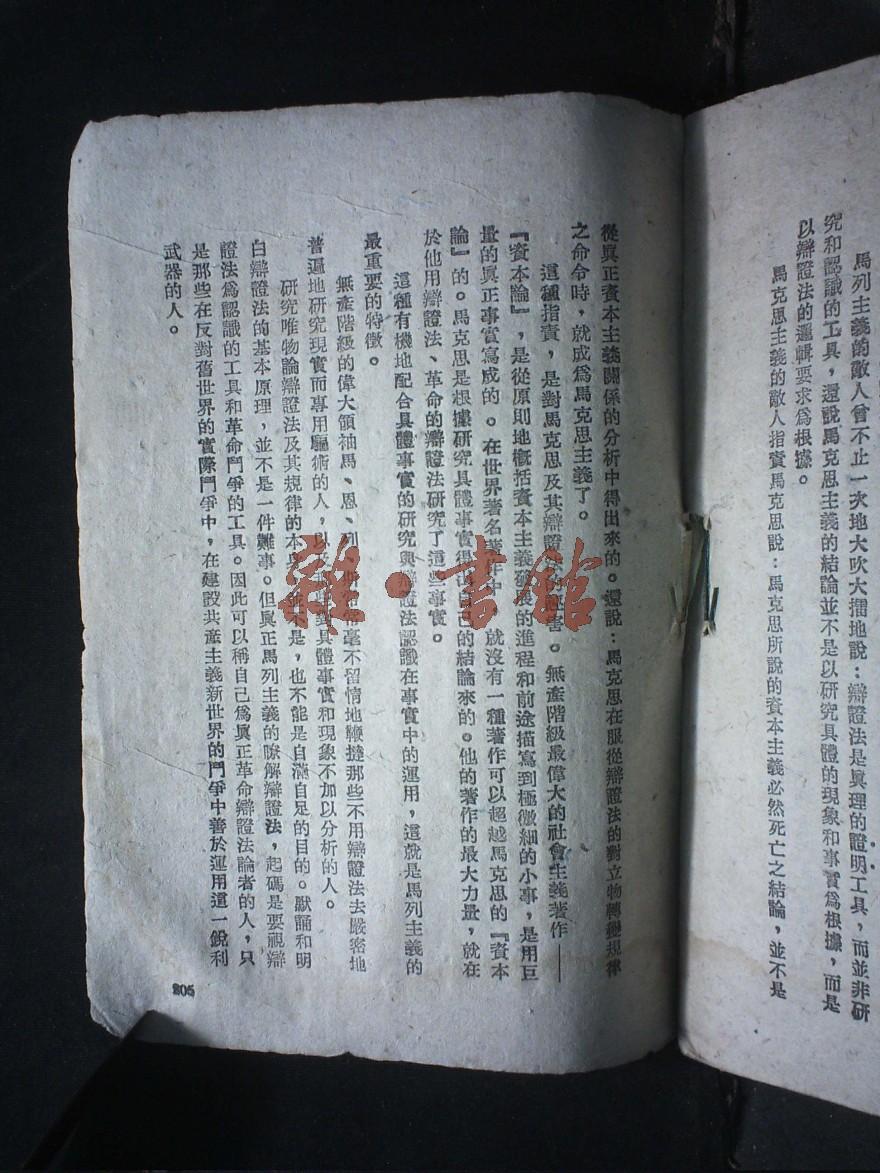 馬列主義的敵人曾不止一次地大吹大擂地說：辯證法是眞理的證明工具，而並非研
究和認識的工具，還說馬克思主義的結論並不是以研究具體的現象和事實爲根據，而是
以辯證法的邏輯要求爲根據。
馬克思主義的敵人指責馬克思說：馬克思所說的資本主義必然死亡之結論，並不是
從眞正資本主義關係的分析中得出來的。還說：馬克思在服從辯證法的對立物轉變規律
之命令時，就成爲馬克思主義了。
這種指責，是對馬克思及其辯證法的。無產階級最偉大的社會主義著作——
『資本論』，是從原則地概括資本主義發展的進程和前途描寫到極微細的小事，是用巨
量的眞正事實寫成的。在世界著名著作中，就沒有一種著作可以超越馬克思的『資本
論』的。馬克思是根據研究具體事實得出自己的結論來的。他的著作的最大力量，就在
於他用辯證法、革命的辯證法研究了這些事實。
這種有機地配合具體事實的研究與辯證法認識在事實中的運用，這就是馬列主義的
最重要的特徵。
無產階級的偉大領袖馬、恩、列、毫不留情地鞭撻那些不用辯證法去嚴密地
普遍地研究現實而專用騙術的人，以及對具體事實和現象不加以分析的人。
研究唯物論辯證法及其規律的本身，並不是，也不能是自滿自足的目的。默誦和明
白辯證法的基本原理，並不是一件難事。但眞正馬列主義的瞭解辯證法，起碼是要視辯
證法爲認識的工具和革命鬥爭的工具。因此可以稱自己爲眞正革命辯證法論者的人，只
是那些在反對舊世界的實際鬥爭中，在建設共產主義新世界的鬥爭中善於運用這一銳利
武器的人。
205
雜·書館